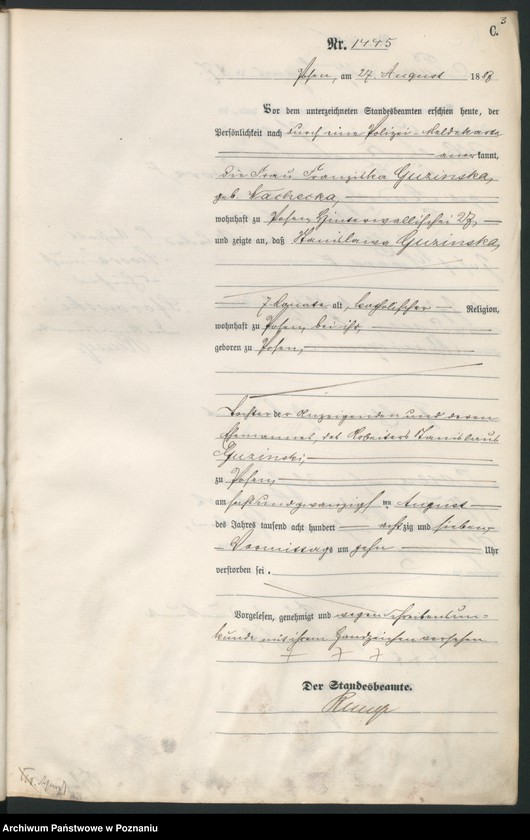 C. 3
Nr. 1445
Posen, am 27. August 1887
Vor dem unterzeichneten Standesbeamten erschien heute, der
Persönlichkeit nach durch eine Polizei-Meldekarte
anerkannt,
die Frau Franziska Guzinska,
geb. Wachecka,
wohnhaft zu Posen, Hinterwallischei 27,
und zeigte an, daß Stanislawa Guzinska,
7 Monate alt, katholischer Religion,
wohnhaft zu Posen, bei ihr,
geboren zu Posen,
Tochter der Anzeigenden und deren
Ehemannes, des Arbeiters Stanislaus
Guzinski,
zu Posen
am sechsundzwanzigsten August
des Jahres tausend acht hundert achtzig und sieben,
Vormittags um zehn Uhr
verstorben sei.
Vorgelesen, genehmigt und wegen Schreibensun-
kunde mit ihrem Handzeichen versehen
+ + +
Der Standesbeamte.
Archiwum Państwowe w Poznaniu